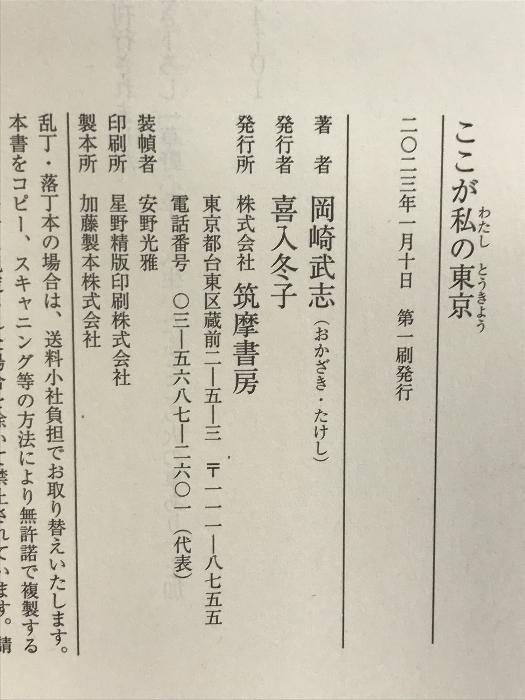 ここが私の東京
わたし とうきょう
二〇二三年一月十日 第一刷発行
著 者 岡崎武志(おかざき・たけし)
発行者 喜入冬子
発行所 株式会社 筑摩書房
東京都台東区蔵前二―五―三 〒一一一―八七五五
電話番号 〇三―五六八七―二六〇一(代表)
装幀者 安野光雅
印刷所 星野精版印刷株式会社
製本所 加藤製本株式会社
乱丁・落丁本の場合は、送料小社負担でお取り替えいたします。
本書をコピー、スキャニング等の方法により無許諾で複製する